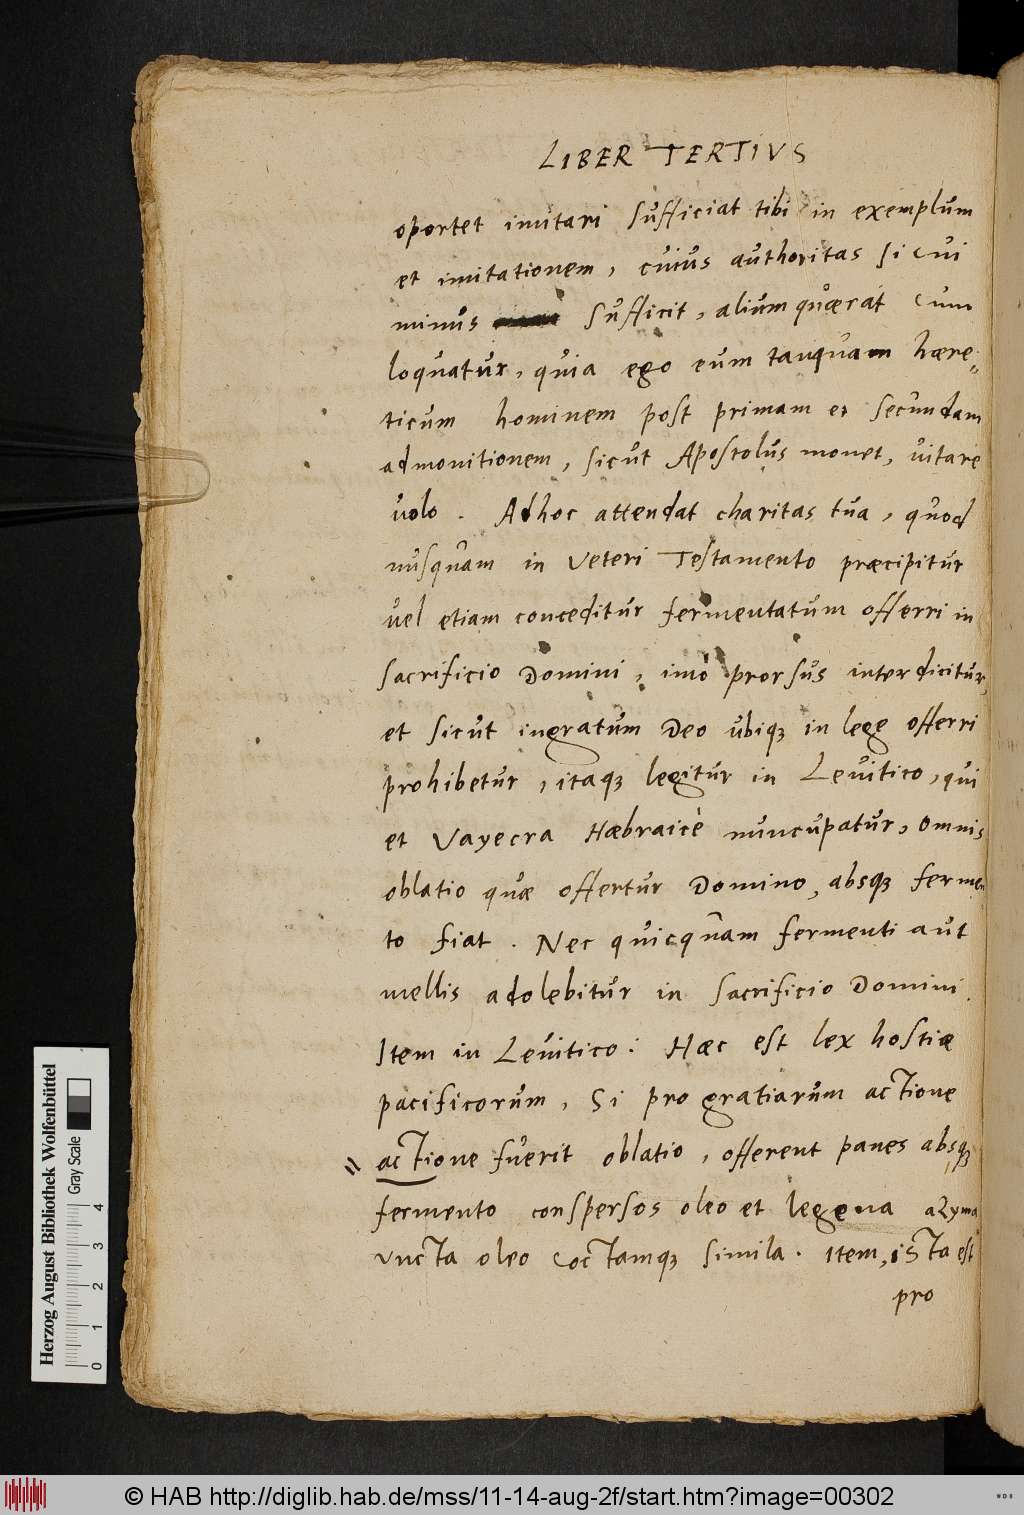 LIBER TERTIVS
oportet imitari sufficiat tibi in exemplum
et imitationem, cuius authoritas si cui
minus sufficit, alium quærat cum
loquatur, quia ego eum tanquam hære„
ticum hominem post primam et secundam
admonitionem, sicut Apostolus monet, vitare
volo. Adhoc attendat charitas tua, quod
nusquam in Veteri Testamento præcipitur
vel etiam conceditur fermentatum offerri in
sacrificio Domini, imò prorsus interdicitur,
et sicut ingratum Deo ubiq; in lege offerri
prohibetur, itaq; legitur in Levitico, qui
et Vayecra Hæbraicè nuncupatur, omnis
oblatio quæ offertur Domino, absq; fermen
to fiat. Nec quicquam fermenti aut
mellis adolebitur in sacrificio Domini.
Item in Levitico: Hæc est lex hostiæ
pacificorum, Si pro gratiarum actione
actione fuerit oblatio, offerent panes absq;
fermento conspersos oleo et legena azyma
uncta oleo coctamq; simila. Item, ista est
pro
Herzog August Bibliothek Wolfenbüttel
Gray Scale
0 1 2 3 4
© HAB http://diglib.hab.de/mss/11-14-aug-2f/start.htm?image=00302